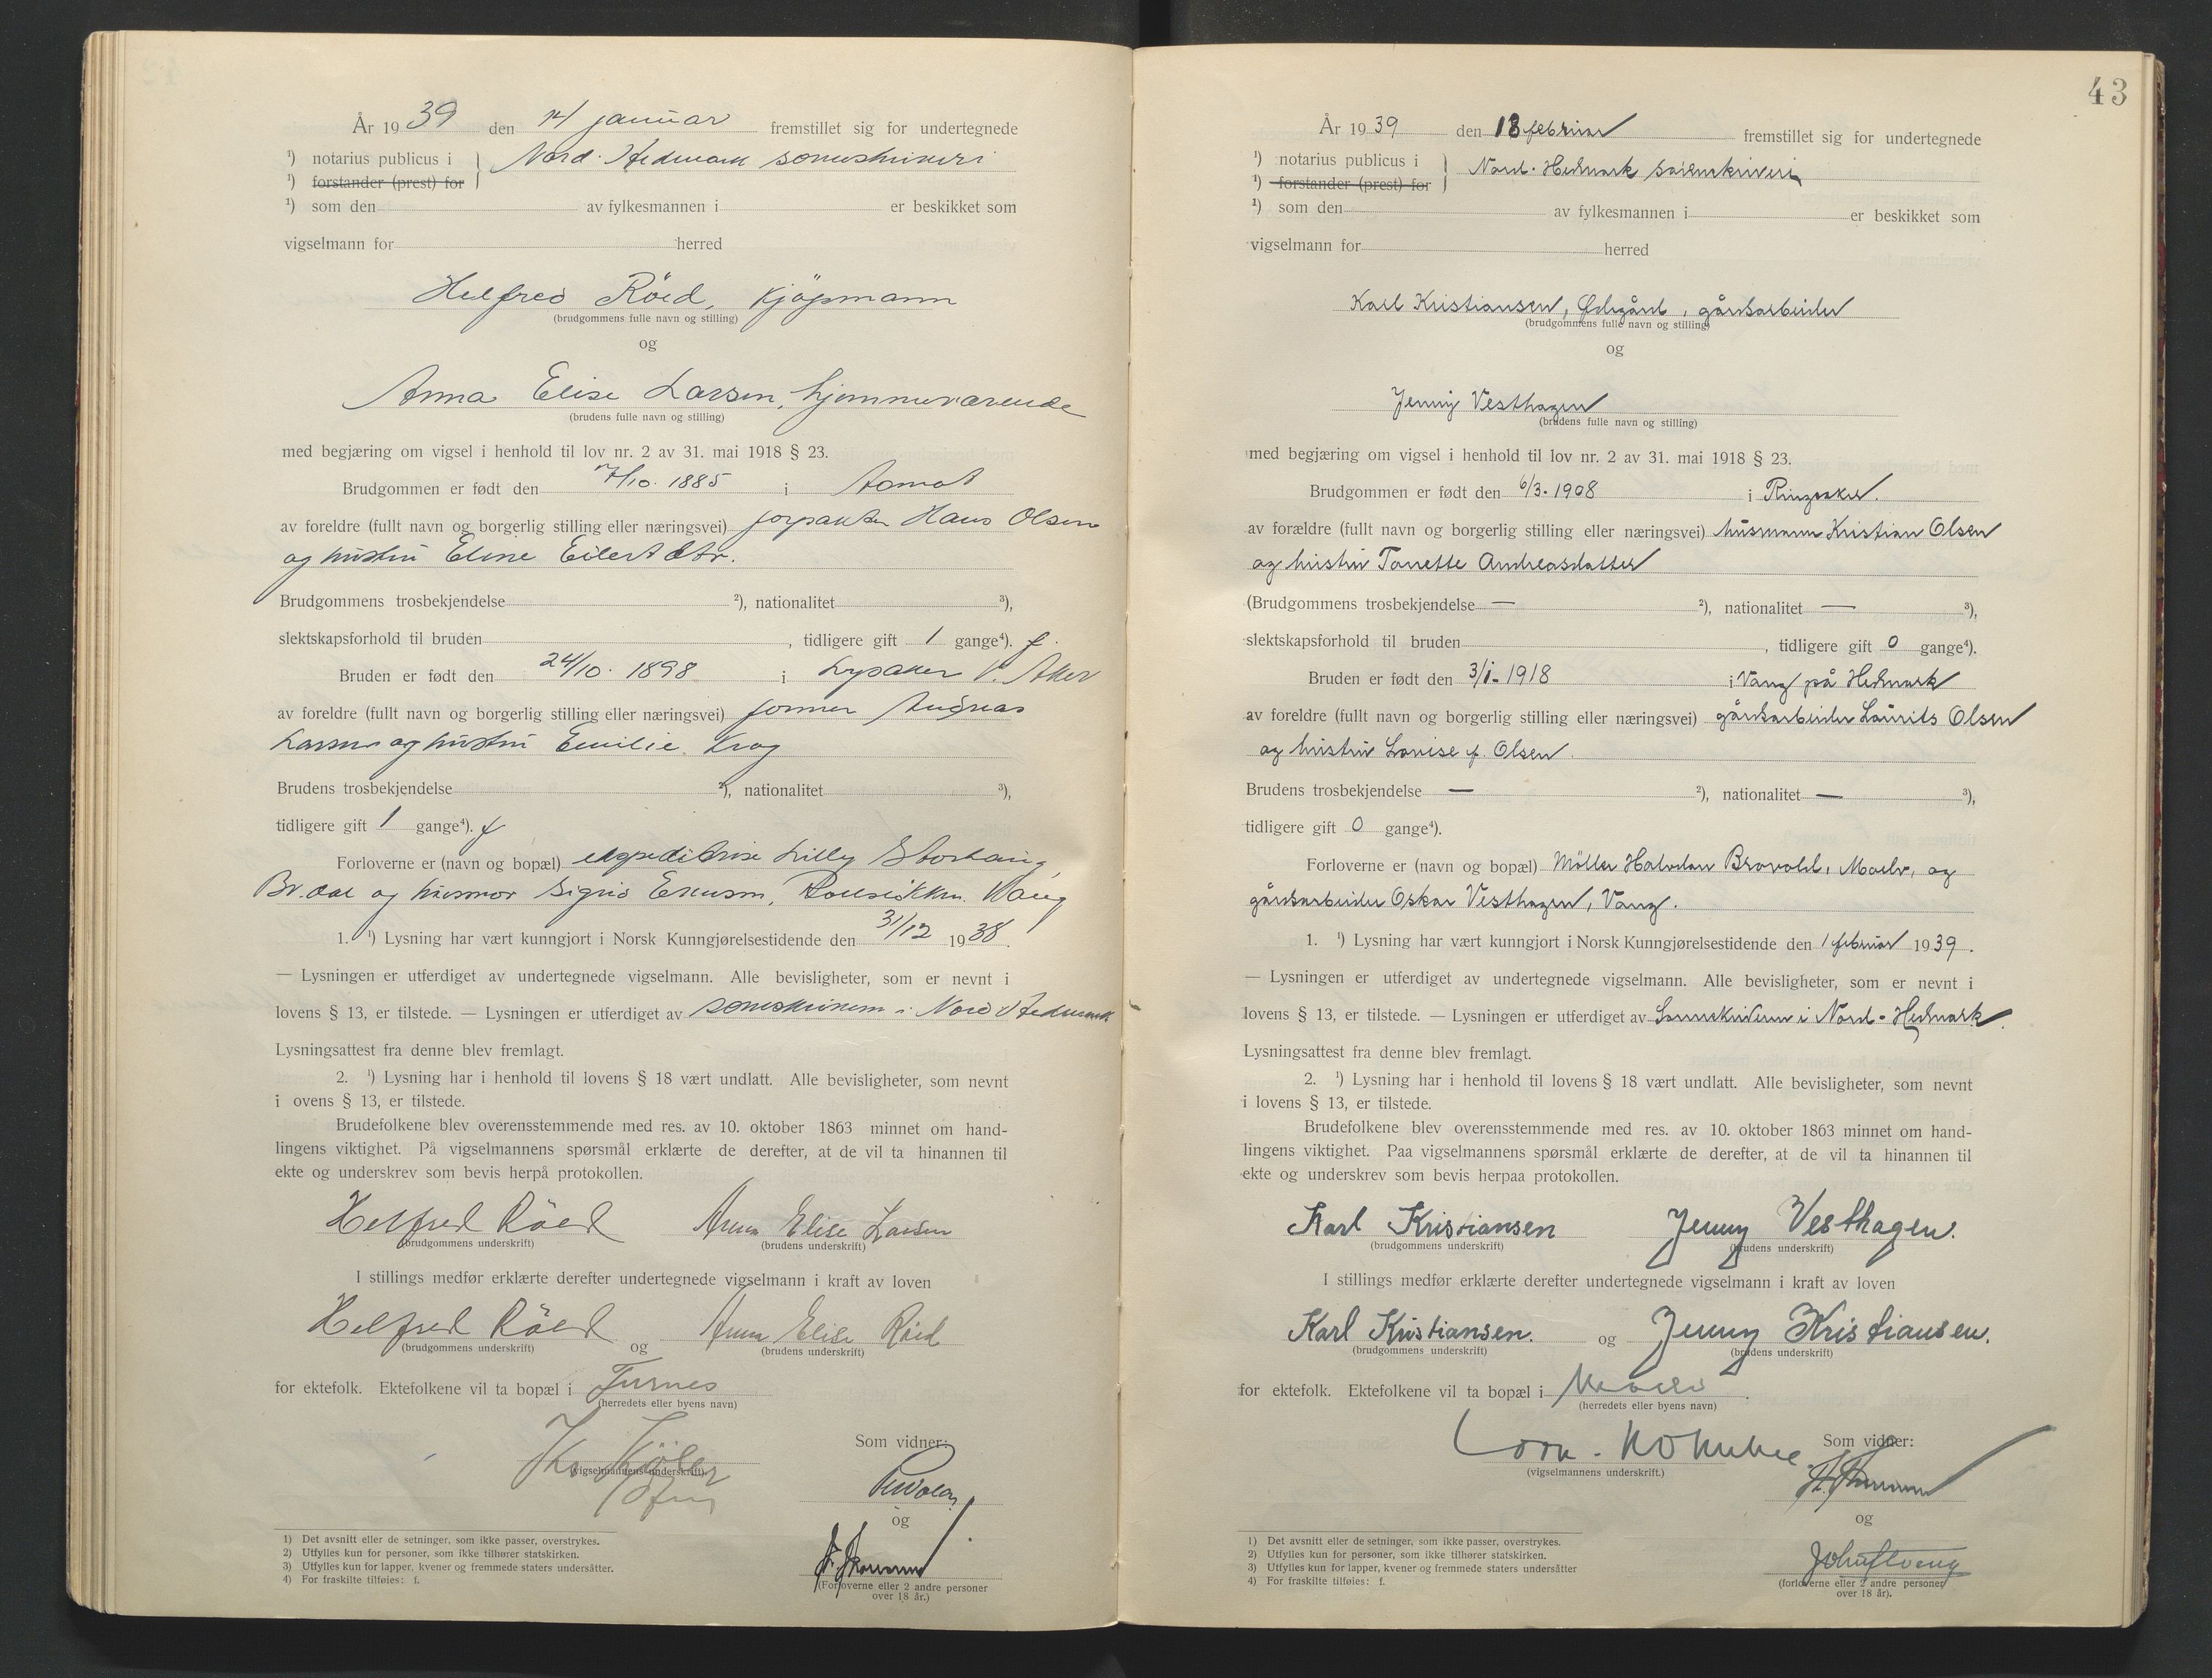 År 1939 den 14 januar fremstillet sig for undertegnede
¹) notarius publicus i
Nord-Hedmark sorenskriveri
¹) forstander (prest) for
¹) som den av fylkesmannen i er beskikket som
vigselmann for herred
Helfred Röed, kjöpmann
(brudgommens fulle navn og stilling)
og
Anna Elise Larsen, hjemmeværende
(brudens fulle navn og stilling)
med begjæring om vigsel i henhold til lov nr. 2 av 31. mai 1918 § 23.
Brudgommen er født den 7/10. 1885 i
av foreldre (fullt navn og borgerlig stilling eller næringsvei) forpakter Hans Olsen
og hustru Eline Eilertdtr.
Brudgommens trosbekjendelse ²), nationalitet ³),
slektskapsforhold til bruden , tidligere gift 1 gange⁴). f
Bruden er født den 24/10. 1898 i Lysaker V. Aker
av foreldre (fullt navn og borgerlig stilling eller næringsvei) former
Larsen og hustru Emilie Krog
Brudens trosbekjendelse ²), nationalitet ³),
tidligere gift 1 gange⁴). f
Forloverne er (navn og bopæl) ekspeditrise Lilly
og husmor Sigrid Vang
1. ¹) Lysning har vært kunngjort i Norsk Kunngjørelsestidende den 31/12 1938.
— Lysningen er utferdiget av undertegnede vigselmann. Alle bevisligheter, som er nevnt i
lovens § 13, er tilstede. — Lysningen er utferdiget av sorenskriveren i Nord Hedmark
Lysningsattest fra denne blev fremlagt.
2. ¹) Lysning har i henhold til lovens § 18 vært undlatt. Alle bevisligheter, som nevnt
i ovens § 13, er tilstede.
Brudefolkene blev overensstemmende med res. av 10. oktober 1863 minnet om hand-
lingens viktighet. På vigselmannens spørsmål erklærte de derefter, at de vil ta hinannen til
ekte og underskrev som bevis herpå protokollen.
Helfred Röed Anna Elise Larsen
(brudgommens underskrift) (brudens underskrift)
I stillings medfør erklærte derefter undertegnede vigselmann i kraft av loven
Helfred Röed og Anna Elise Röed
(brudgommens underskrift) (brudens underskrift)
for ektefolk. Ektefolkene vil ta bopæl i Furnes
(herredets eller byens navn)
Som vidner:
(vigselmannens underskrift)
og
(Forloverne eller 2 andre personer
over 18 år.)
1) Det avsnitt eller de setninger, som ikke passer, overstrykes.
2) Utfylles kun for personer, som ikke tilhører statskirken.
3) Utfylles kun for lapper, kvener og fremmede staters undersåtter.
4) For fraskilte tilføies: f.
43
År 1939 den 18 februar fremstillet sig for undertegnede
¹) notarius publicus i
Nord-Hedmark sorenskriveri
¹) forstander (prest) for
¹) som den av fylkesmannen i er beskikket som
vigselmann for herred
Karl Kristiansen, Ødegård, gårdsarbeider
(brudgommens fulle navn og stilling)
og
Jenny Vesthagen
(brudens fulle navn og stilling)
med begjæring om vigsel i henhold til lov nr. 2 av 31. mai 1918 § 23.
Brudgommen er født den 6/3-1908 i Ringsaker.
av forældre (fullt navn og borgerlig stilling eller næringsvei) husmann Kristian Olsen
og hustru Tonette Andreasdatter
(Brudgommens trosbekjendelse — ²), nationalitet — ³),
slektskapsforhold til bruden , tidligere gift 0 gange⁴).
Bruden er født den 3/1-1918 i Vang på Hedmark
av foreldre (fullt navn og borgerlig stilling eller næringsvei) gårdsarbeider Laurits Olsen
og hustru Lovise f. Olsen.
Brudens trosbekjendelse — ²), nationalitet — ³),
tidligere gift 0 gange⁴).
Forloverne er (navn og bopæl) Möller Halvdan Brovold, Moelv, og
gårdsarbeider Oskar Vesthagen, Vang.
1. ¹) Lysning har vært kunngjort i Norsk Kunngjørelsestidende den 1 februar 1939.
— Lysningen er utferdiget av undertegnede vigselmann. Alle bevisligheter, som er nevnt i
lovens § 13, er tilstede. — Lysningen er utferdiget av Sorenskriveren i Nord-Hedmark.
Lysningsattest fra denne blev fremlagt.
2. ¹) Lysning har i henhold til lovens § 18 vært undlatt. Alle bevisligheter, som nevnt
i lovens § 13, er tilstede.
Brudefolkene blev overensstemmende med res. av 10. oktober 1863 minnet om hand-
lingens viktighet. Paa vigselmannens spørsmål erklærte de derefter, at de vil ta hinannen til
ekte og underskrev som bevis herpaa protokollen.
Karl Kristiansen Jenny Vesthagen.
(brudgommens underskrift) (brudens underskrift)
I stillings medfør erklærte derefter undertegnede vigselmann i kraft av loven
Karl Kristiansen. og Jenny Kristiansen.
(brudgommens underskrift) (brudens underskrift)
for ektefolk. Ektefolkene vil ta bopæl i
(herredets eller byens navn)
Som vidner:
(vigselmannens underskrift.)
og
(forloverne eller 2 andre personer
over 18 år).
1) Det avsnitt eller de setninger, som ikke passer, overstrykes.
2) Utfylles kun for personer, som ikke tilhører statskirken.
3) Utfylles kun for lapper, kvener og fremmede staters undersåtter
4) For fraskilte tilføies: f.